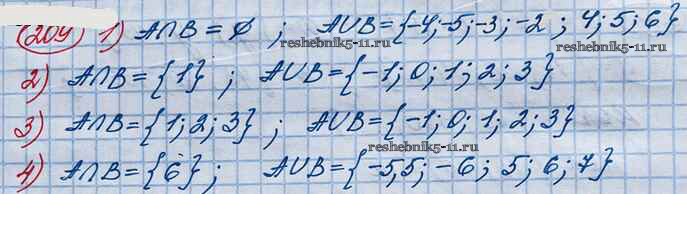 204) 1) A∩B = ∅ ; A∪B = {-4;-5;-3;-2 ; 4; 5; 6}
reshebnik5-11.ru reshebnik5-11.ru
2) A∩B = {1} ; A∪B = {-1; 0; 1; 2; 3}
3) A∩B = {1; 2; 3} ; A∪B = {-1; 0; 1; 2; 3}
reshebnik5-11.ru
4) A∩B = {6} ; A∪B = {-5,5; -6; 5; 6; 7}